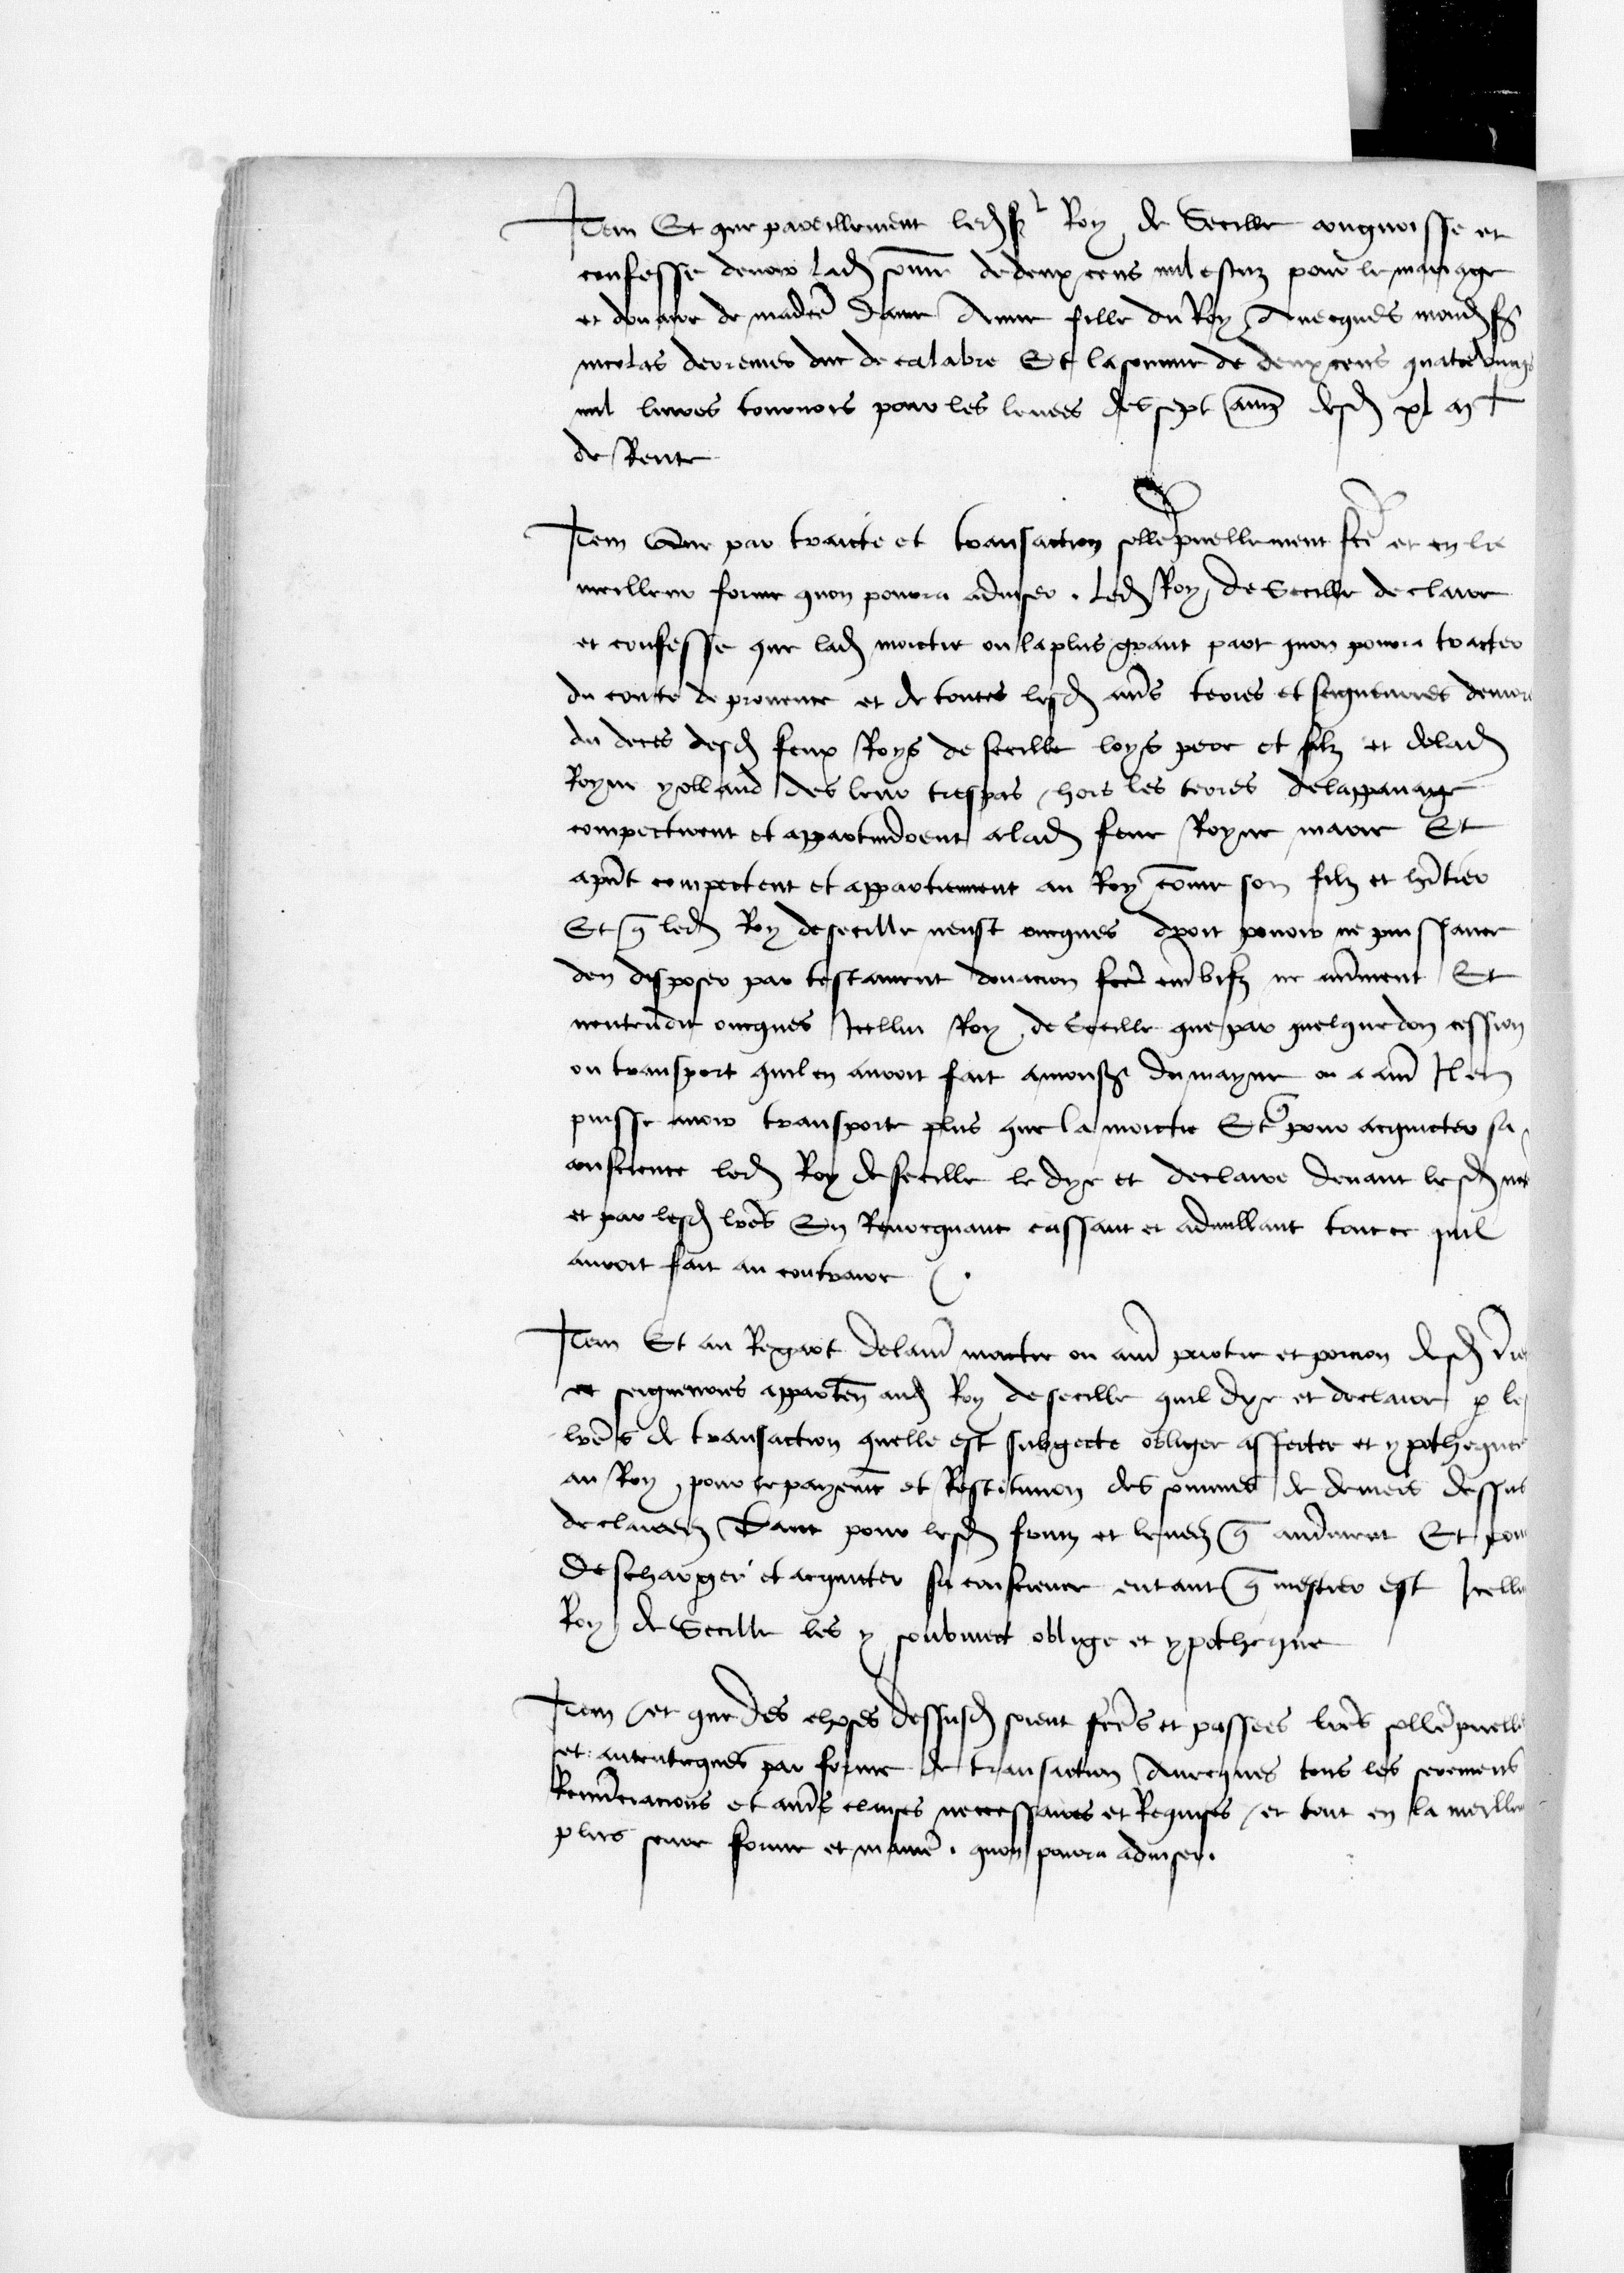 Item Et que pareillement led sr Roy de Secille congnoisse et
confesse devoir lad somme de deux cens mil escuz pour le mariage
et douaire de madame Anne fille du Roy Avecques mond sgr
nicolas derrenier duc de calabre Et la somme de deux cens quatre vings
mil livres tournois pour les levees des sept annees desd xl m t
de Rente
Item Que par traicte et transaction sollempnellement fcte et en la
meilleur forme quon pourra adviser . Led Roy de Secille declaire
et confesse que lad moictie ou la plus grant part quon pourra tracter
du conte de provence et de toutes lesd aures terres et seigneuries
du deces desd feux Roys de secille loys pere et filz et de lad
Royne yolland des leur trespas hors les terres de lappanage
compecterent et appartindrent a lad feue Royne marie Et
apnt compectent et appartiennent au Roy comme son filz et hritier
Et q led Roy de secille neust oncques droit povoir ne puissance
den disposer par testament donacion fcte entre vifz ne aurement Et
nentendit oncques Icellui Roy de Secille que par quelque don cession
ou transport quil en auroit fait a monsgr du mayne ou a aure Il en
puisse avoir transporte plus que la moictie Et q pour acquicter sa
conscience led Roy de secille le dye et declaire devant lesd
et par lesd lres En Revocquant cassant et adnullant tout ce quil
auroit fait au contraire
Item Et au Regart de laure moictie ou aure partie et porcion desd
et seigneuries apparten aud Roy de secille quil dye et declaire p les
lres de transaction quelle est subgecte obligee affectee et ypothequee
au Roy pour le payement et Restitucion des sommes de deniers dessus
declairees Tant pour lesd fruiz et levees q aurement Et pour
descharger et acquitter sa conscience entant q mestier est Icellui
Roy de Secille les y soubmect oblige et ypotheque
Item et que des choses dessusd soient fctes et passees lres sollempnelles
et autenticques par forme de transaction Avecques tous les seremens
Renunciacions et aures clauses necessaires et Requises et tout en la meilleur
plus seure forme et maniere . quon pourra adviser .